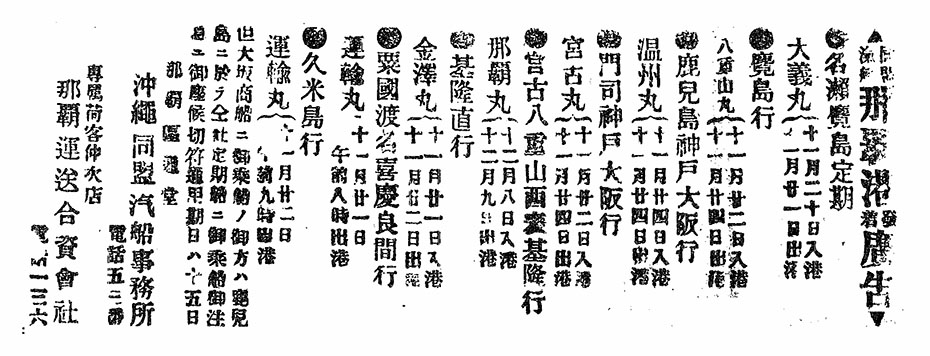 那覇港發着廣告
名瀬鹿兒島定期
大義丸 十一月二十日入港
十一月廿一日出港
鹿兒島行
八重山丸 十一月廿二日入港
十一月廿四日出港
鹿兒島神戸大阪行
温州丸 十一月廿四日入港
十一月廿四日出港
門司神戸大阪行
宮古丸 十一月廿四日入港
十一月廿四日出港
宮古八重山西表基隆行
那覇丸 十二月八日入港
十二月九日出港
基隆直行
金澤丸 十一月廿一日入港
十一月廿二日出港
粟國渡名喜慶良間行
運輸丸 十一月廿一日
午前八時出港
久米島行
運輸丸 十一月廿二日
午前九時出港
但大坂商船ニ御乘船ノ御方ハ鹿兒
島ニ於テ仝社定期船ニ御乘船御注
意ニ御座候切符通用期日ハ十五日
那覇區通堂
沖繩同盟汽船事務所
電話五二番
專屬荷客仲次店
那覇運送合資會社
電話一三六